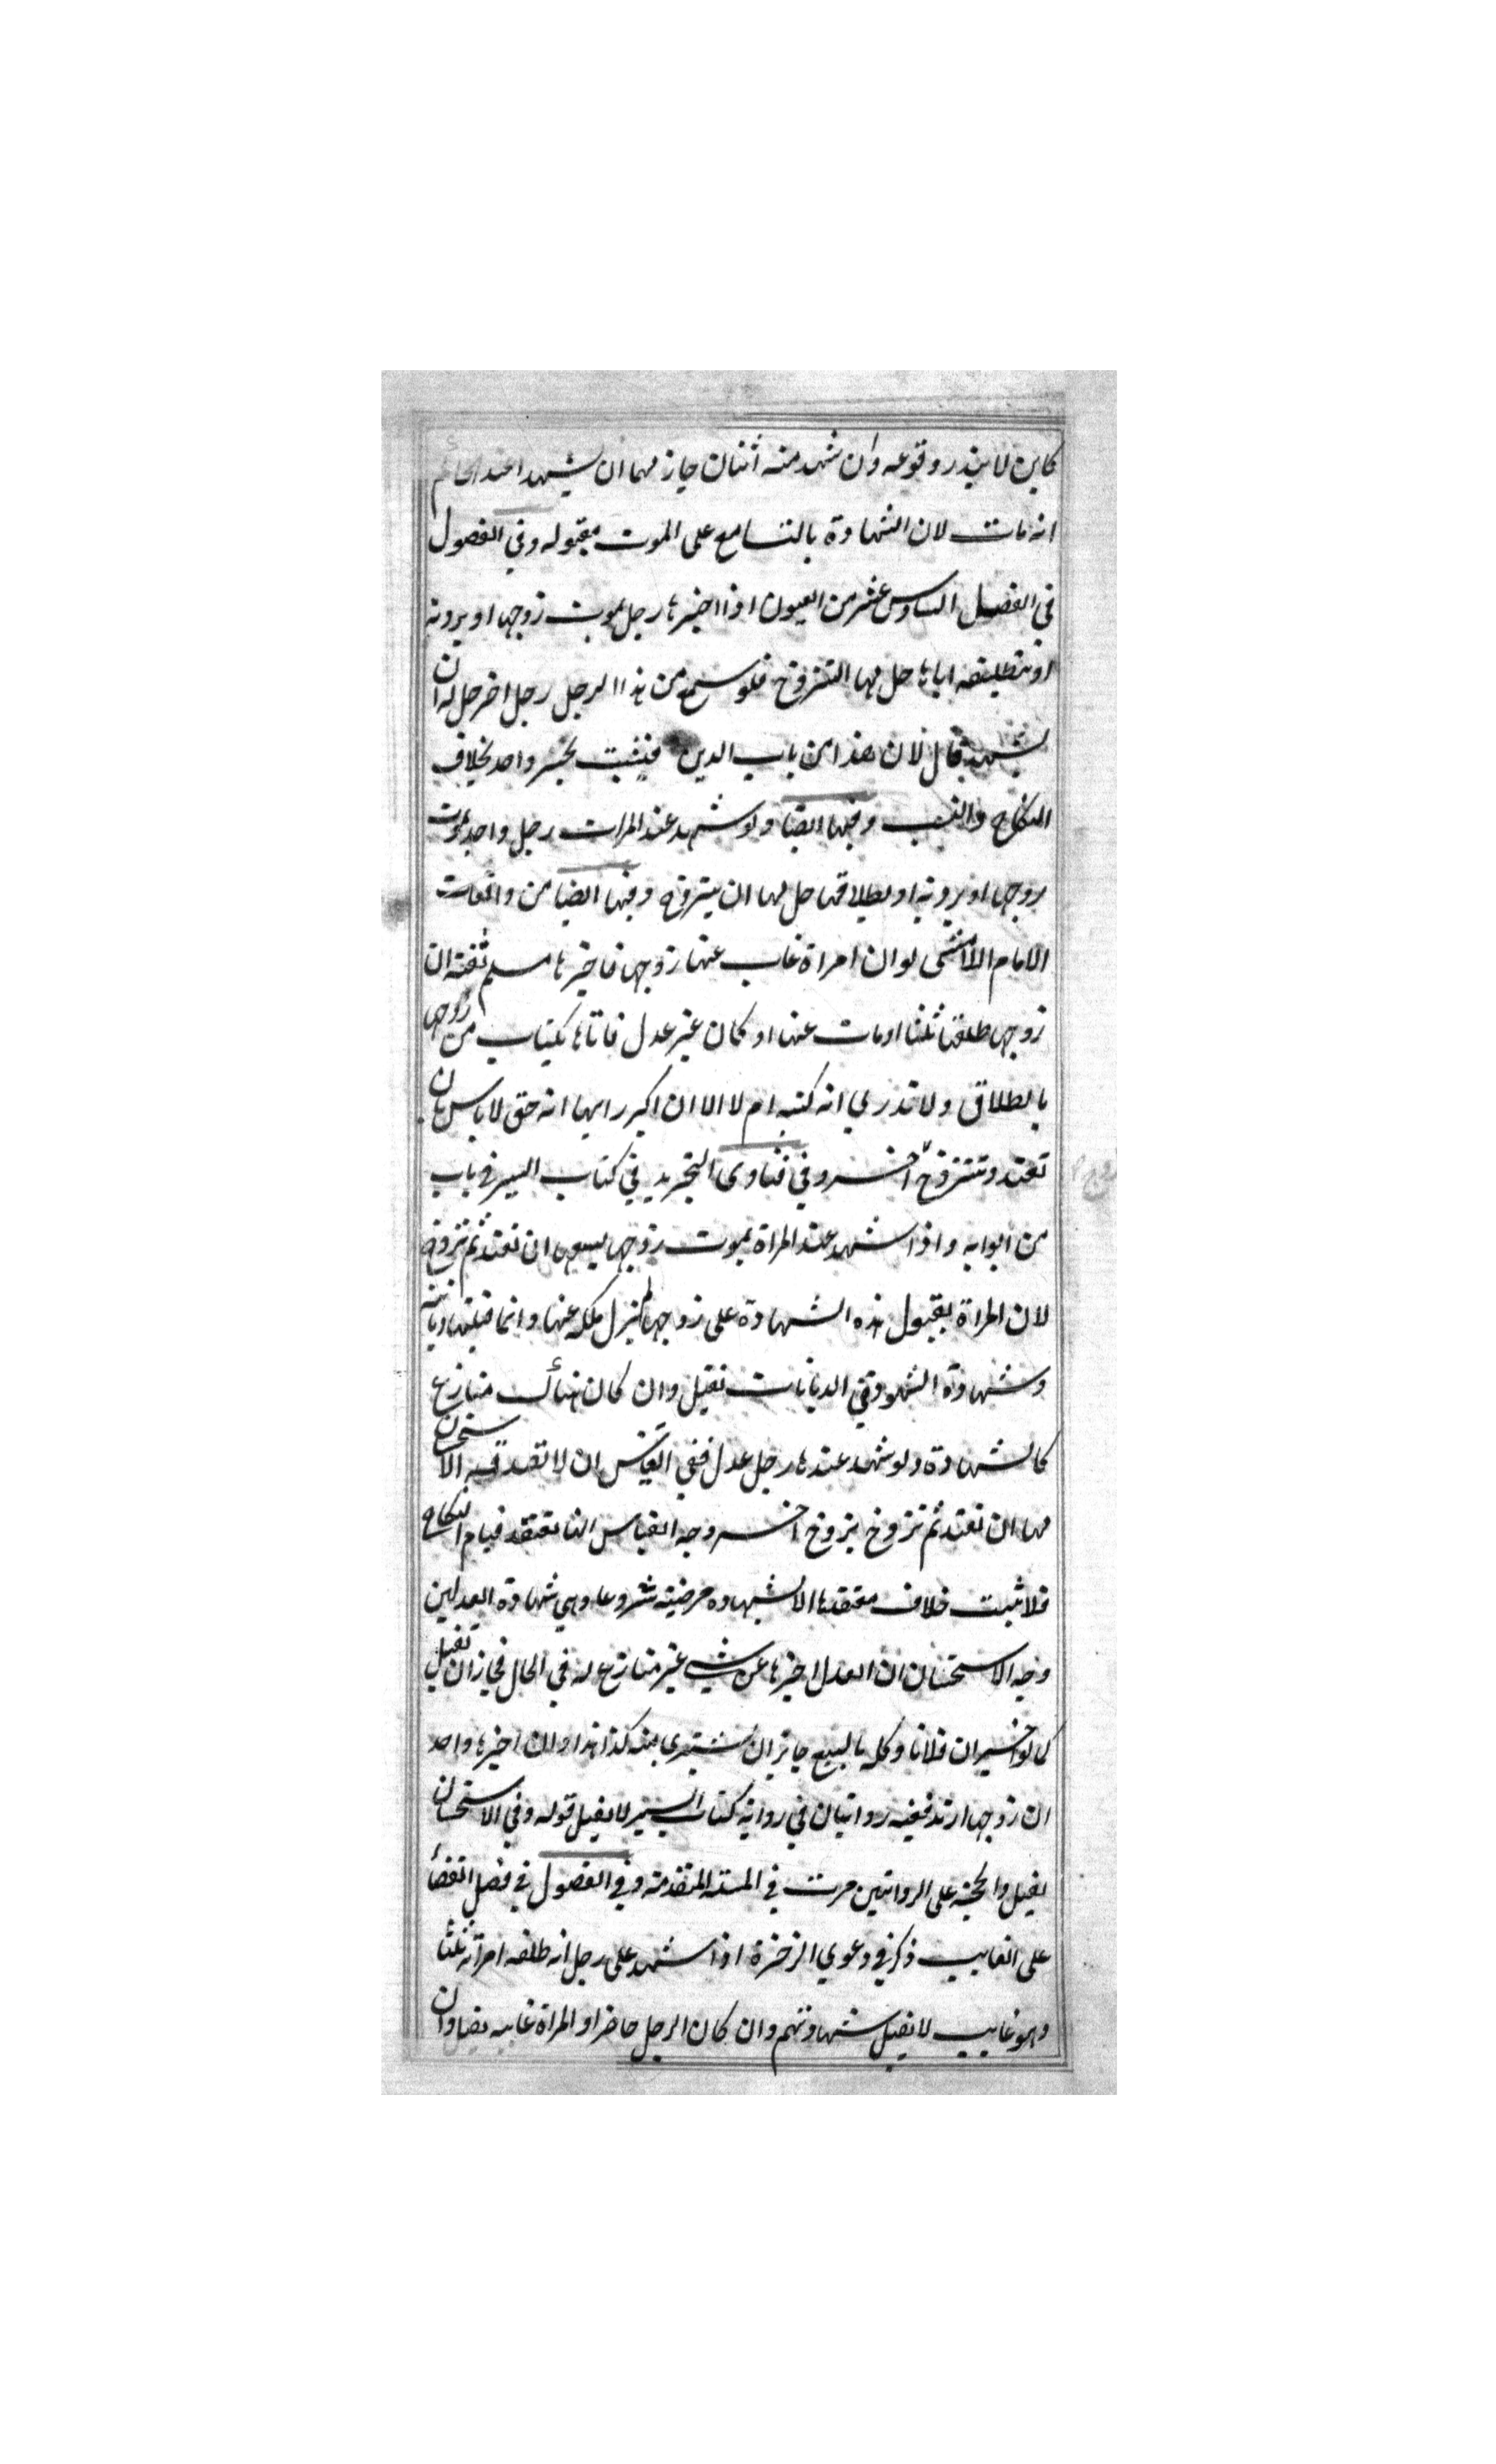 كاين لا يندر وقوعه وان شهد منه اثنان جاز لهما ان يشهدا عند الحاكم
انه مات لان الشهادة بالتسامع على الموت مقبوله وفي الفصول
في الفصل السادس عشر من العيون اذا اخبرها رجل بموت زوجها او بردته
او بتطليقه اياها حل لها التزوج فلو سمع من هذا الرجل رجل اخر حل له ان
يشهد قال لان هذا من باب الدين فيثبت بخبر واحد بخلاف
النكاح والنسب وفيها ايضا ولو شهد عند المرات رجل واحد بموت
زوجها او بردته او بطلاقها حل لها ان يتزوج وفيها ايضا من واقعات
الامام لو ان امراة غاب عنها زوجها فاخبرها مسلم ثقته ان
زوجها طلقها ثلثا او مات عنها او كان غير عدل فاتاها بكتاب من زوجها
بالطلاق ولا تدري انه كتبه ام لا الا ان اكبر رايها انه حق لا باس بان
تعتد وتتزوج آخر وفي فتاوى التجريد في كتاب السير في باب
من ابوابه واذا شهد عند المراة بموت زوجها يسعها ان تعتد ثم تزوج
لان المراة بقبول هذه الشهادة على زوجها لم نزل ملكه عنها وانما قبلتها ديانته
وشهادة الشهود في الديانات تقبل وان كان هناك منازع
كالشهادة ولو شهد عندها رجل عدل ففي القياس ان لا تصدقه الاستحسان
لها ان تعتد ثم تزوج بزوج اخر وجه القياس انها تعتقد قيام النكاح
فلا ثبت خلاف معتقدها الا بشهاده مرضيته شروعا وهي شهادة العدلين
وجه الاستحسان ان العدل اخبرها عن شي غير منازع له في الحال فجاز ان تقبل
كما لو اخبر ان فلانا وكله بالبيع جاز ان يشترى منه كذا هذا وان اخبرها واحد
ان زوجها ارتد ففيه روايتان في رواية كتاب السير لا يقبل قوله وفي الاستحسان
يقبل والحجة على الروايتين مرت في المسئله المتقدمة وفي الفصول في فصل القضاء
على الغايب ذكر في دعوي الذخرة اذا شهد على رجل انه طلقه امراته ثلثا
وهو غايب لا يقبل شهادتهم وان كان الرجل حاضرا والمراة غايبه يقبل وان